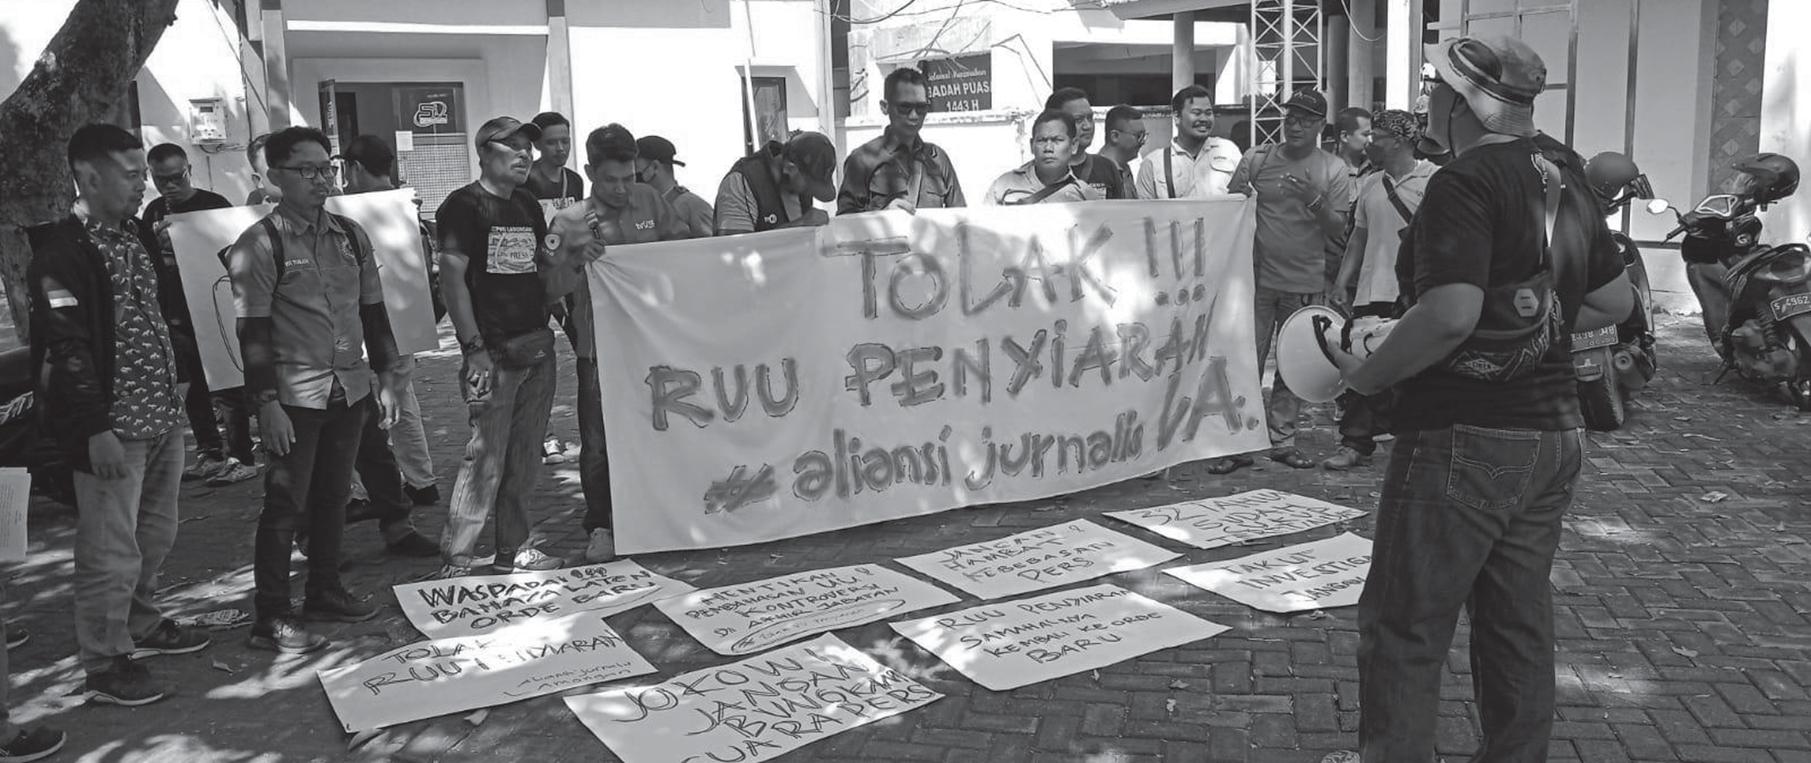 Selamat Menunaikan
IBADAH PUASA
1443 H
PRESS
TOLAK !!!
RUU PENYIARAN
# aliansi jurnalis LA.
WASPADA!!!
BAHAYA LATEN
ORDE BARU
HENTIKAN
PEMBAHASAN UU
KONTROVERSI
DI AKHIR JABATAN
JANGAN
HAMBAT
KEBEBASAN
PERS
32 TAHUN
SUDAH
TAKUT
INVESTIGASI
TOLAK
RUU PENYIARAN
aliansi jurnalis
Lamongan
RUU PENYIARAN
SAMAHALNYA
KEMBALI KE ORDE
BARU
JOKOWI
JANGAN
BUNGKAM
SUARA PERS